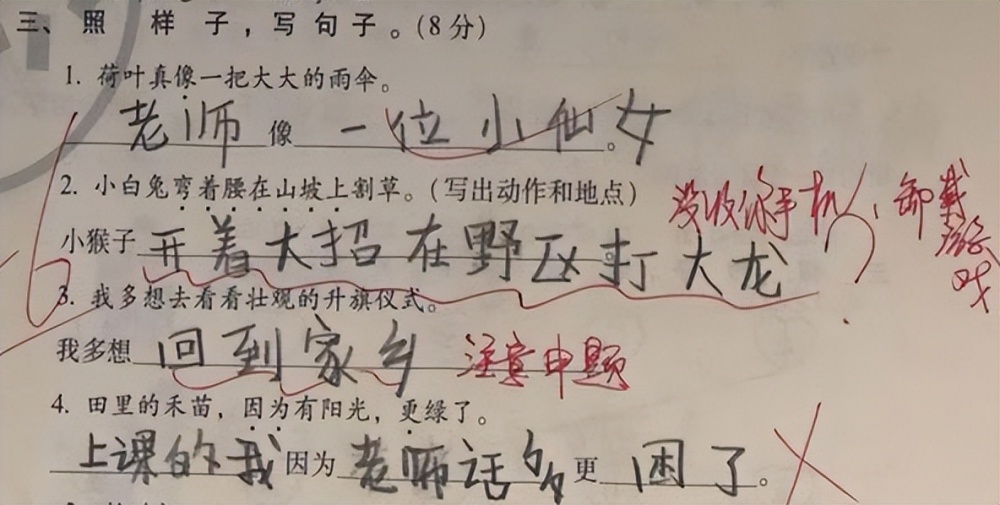 三、照 样 子，写句子。(8分)
1. 荷叶真像一把大大的雨伞。
老师像一位小仙女。
2. 小白兔弯着腰在山坡上割草。(写出动作和地点)
没收你手机，卸载游戏
小猴子开着大招在野区打大龙
?
-6
3. 我多想去看看壮观的升旗仪式。
我多想回到家乡 注意审题
4. 田里的禾苗，因为有阳光，更绿了。
上课的我因为老师话多更困了。